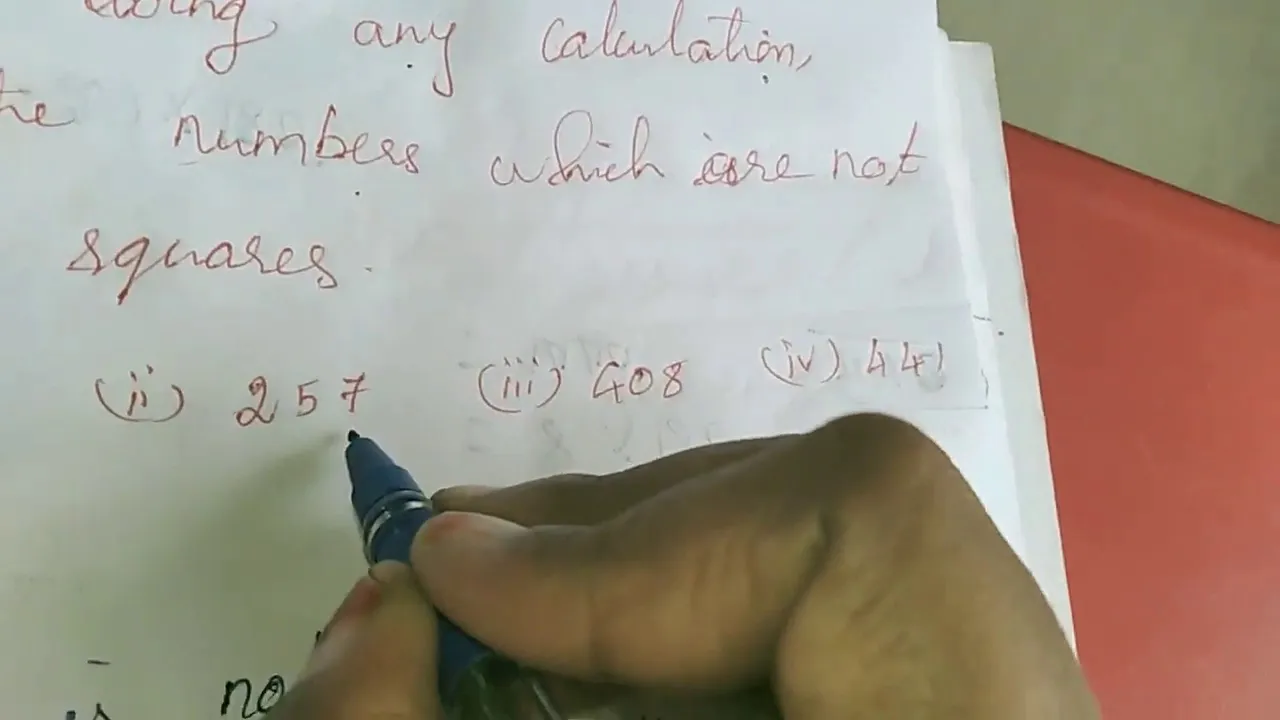 doing any calculation,
the numbers which are not
squares.
(ii) 257 (iii) 408 (iv) 441
is no